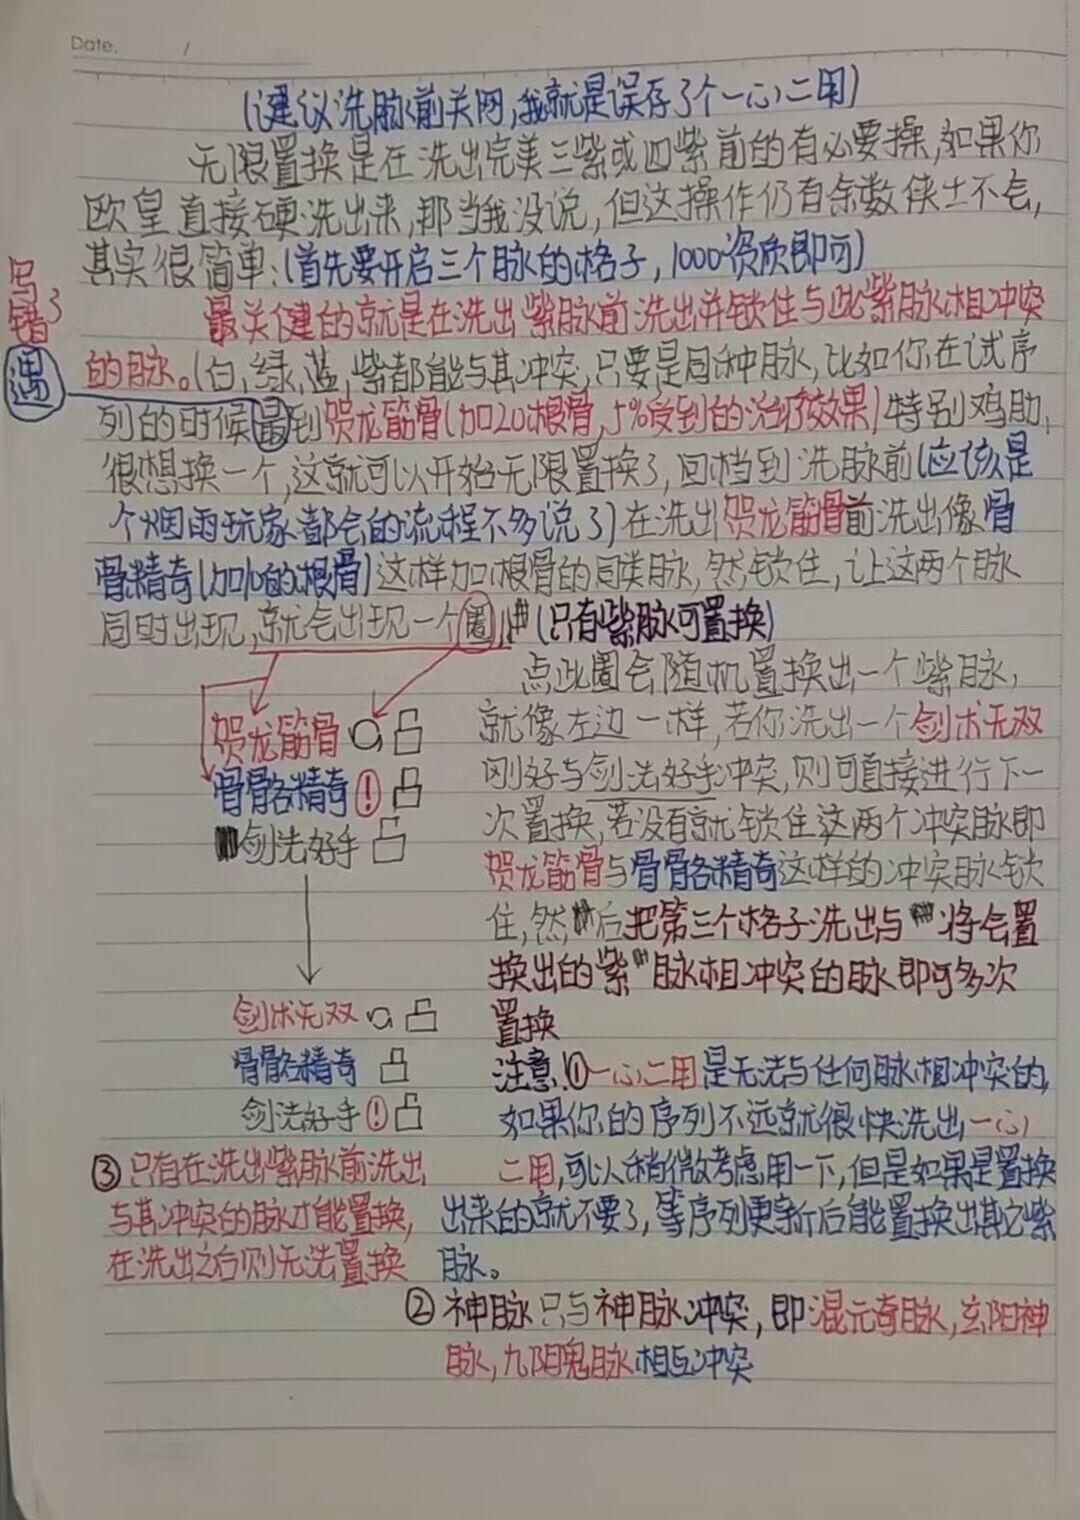 Date.      /
(建议洗脉前关网,我就是误存了个一心二用)
无限置换是在洗出完美三紫或四紫前的有必要操,如果你
欧皇直接硬洗出来,那当我没说,但这操作仍有余数侠士不会,
其实很简单:(首先要开启三个脉的格子,1000资质即可)
写错了
遇
最关健的就是在洗出紫脉前洗出并锁住与此紫脉相冲突
的脉。(白,绿,蓝,紫都能与其冲突,只要是同种脉,比如你在试序
列的时候最到贺龙筋骨(加20根骨,5%受到的治疗效果)特别鸡肋,
很想换一个,这就可以开始无限置换了,回档到洗脉前(应该是
个烟雨玩家都会的流程不多说了)在洗出贺龙筋骨前洗出像骨
骨精奇(加10的根骨)这样加根骨的同类脉,然锁住,让这两个脉
同时出现,就会出现一个圈(只有紫脉可置换)
点此圈会随机置换出一个紫脉,
就像左边一样,若你洗出一个剑术无双
刚好与剑法好手冲突,则可直接进行下一
次置换,若没有就锁住这两个冲突脉即
贺龙筋骨与骨骼精奇这样的冲突脉锁
住,然后把第三个格子洗出与将会置
换出的紫脉相冲突的脉即可多次
置换
贺龙筋骨
骨骼精奇!
剑法好手
剑术无双
骨骼精奇
剑法好手!
注意!①一心二用是无法与任何脉相冲突的,
如果你的序列不远就很快洗出一心
二用,可以稍微考虑用一下,但是如果是置换
出来的就不要了,等序列更新后能置换出其它紫
脉。
②神脉只与神脉冲突,即混元奇脉,玄阳神
脉,九阴鬼脉相互冲突
③只有在洗出紫脉前洗出
与其冲突的脉才能置换,
在洗出之后则无法置换